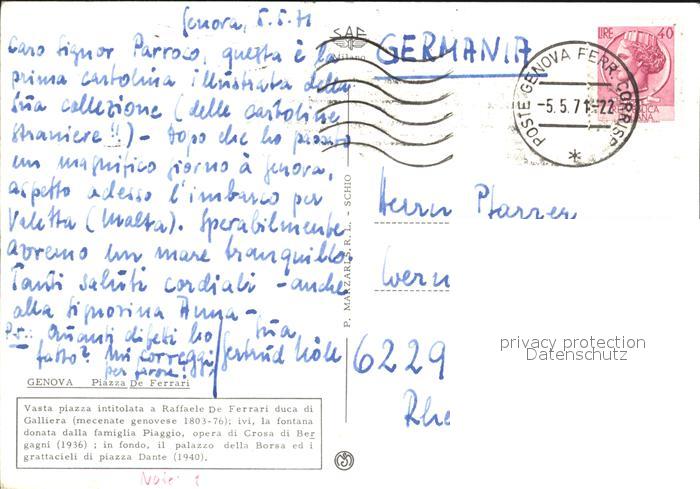 Genova, 5.5.71
Caro Signor Parroco, questa è la
prima cartolina illustrata della
Sua collezione (delle cartoline
straniere!!) - dopo che ho passato
un magnifico giorno à Genova,
aspetto adesso l'imbarco per
Valetta (Malta). Sperabilmente
avremo un mare tranquillo.
Tanti saluti cordiali - anche
alla Signorina Anna -
Sua
Gertrud
P.S.: Quanti difetti ho
fatto? Mi corregga
per favore!
GENOVA Piazza De Ferrari
Vasta piazza intitolata a Raffaele De Ferrari duca di
Galliera (mecenate genovese 1803-76); ivi, la fontana
donata dalla famiglia Piaggio, opera di Crosa di Ber
gagni (1936) ; in fondo, il palazzo della Borsa ed i
grattacieli di piazza Dante (1940).
SAF
Milano
P. MARZARI S.R.L. - SCHIO
GERMANIA
LIRE 40
POSTE GENOVA FERR. CORRISP.
-5.5.71-22
Herrn Pfarrer
Wern
6229
Rhe
privacy protection
Datenschutz